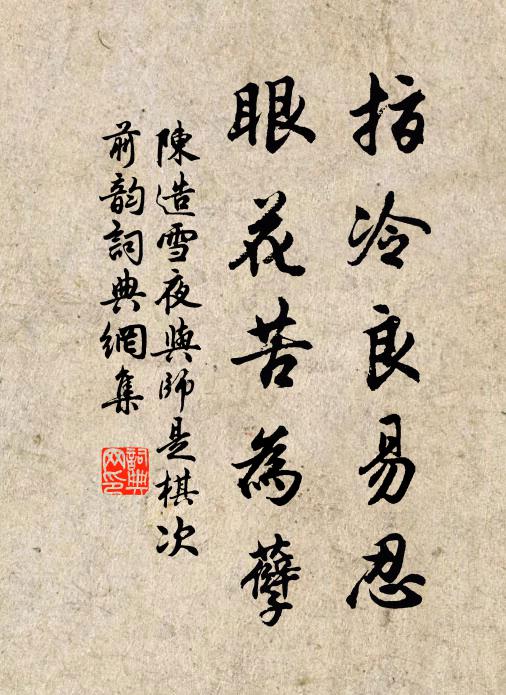 指冷良易忍
眼花苦為孽
陳造雪夜與師是棋次
前韵詞典網集
詞典网印